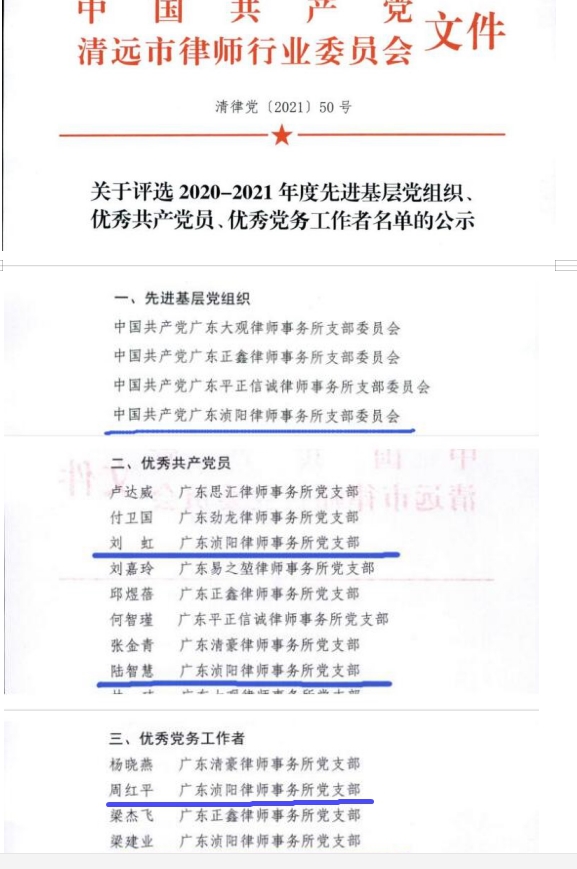 中国共产党
清远市律师行业委员会 文件
清律党〔2021〕50号
关于评选 2020-2021 年度先进基层党组织、
优秀共产党员、优秀党务工作者名单的公示
一、先进基层党组织
中国共产党广东大观律师事务所支部委员会
中国共产党广东正鑫律师事务所支部委员会
中国共产党广东平正信诚律师事务所支部委员会
中国共产党广东浈阳律师事务所支部委员会
二、优秀共产党员
卢达威 广东思汇律师事务所党支部
付卫国 广东劲龙律师事务所党支部
刘 虹 广东浈阳律师事务所党支部
刘嘉玲 广东易之堃律师事务所党支部
邱煜蓓 广东正鑫律师事务所党支部
何智瑾 广东平正信诚律师事务所党支部
张金青 广东清豪律师事务所党支部
陆智慧 广东浈阳律师事务所党支部
三、优秀党务工作者
杨晓燕 广东清豪律师事务所党支部
周红平 广东浈阳律师事务所党支部
梁杰飞 广东正鑫律师事务所党支部
梁建业 广东浈阳律师事务所党支部